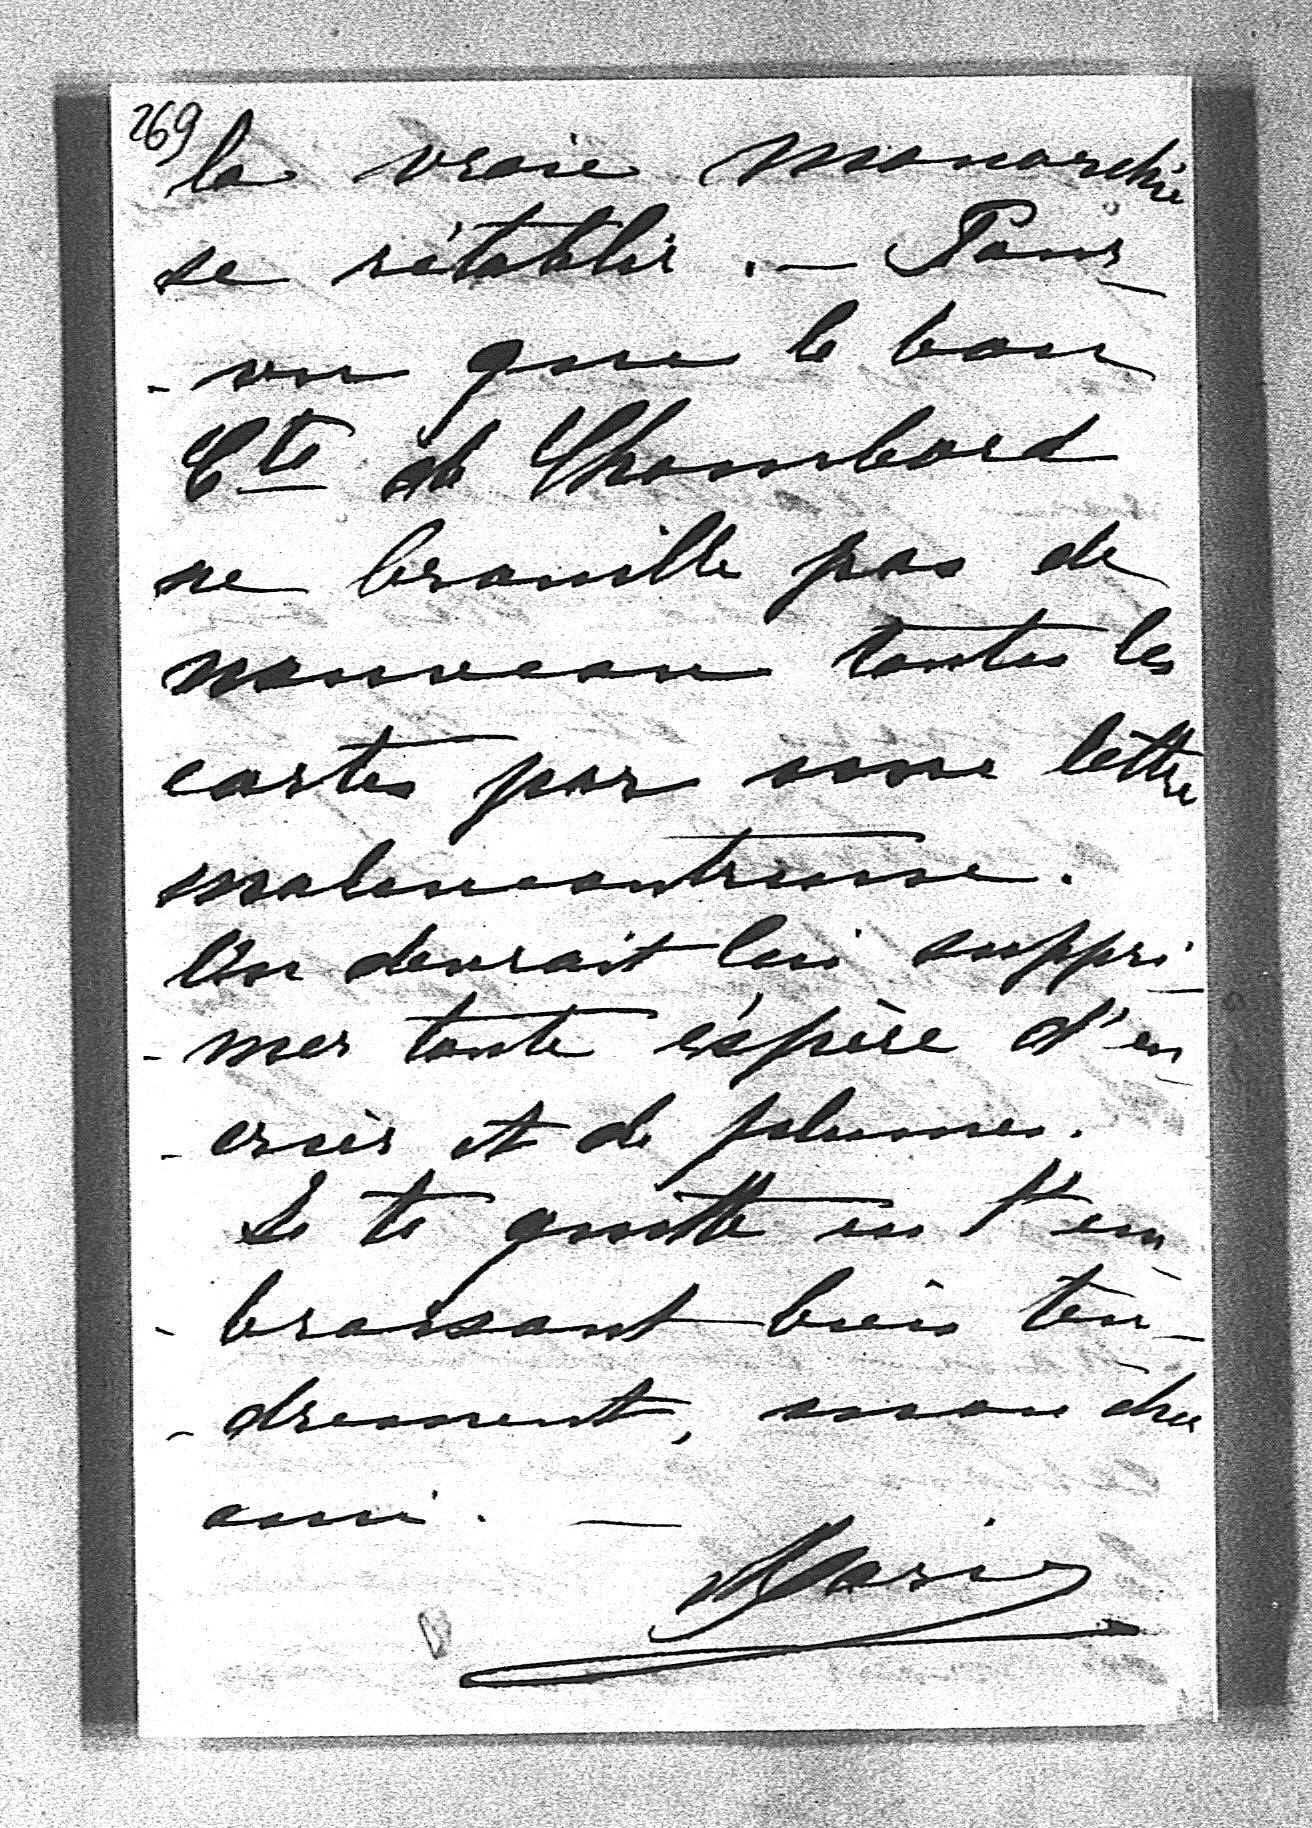 269
la vraie monarchie
se rétablir. — Pour-
-vu que le bon
Cte de Chambord
ne brouille pas de
nouveau toutes les
cartes par une lettre
malencontreuse.
On devrait lui suppri-
-mer toute espèce d'en-
-crier et de plumes.
Je te quitte en t'em-
-brassant bien ten-
-drement, mon cher
ami. —
Marie